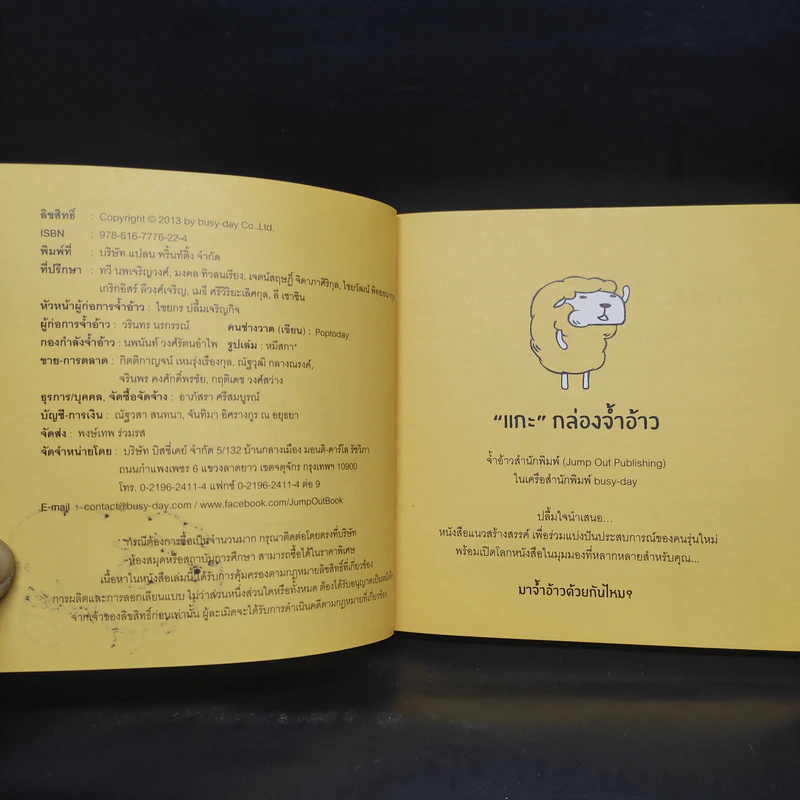 ลิขสิทธิ์ : Copyright © 2013 by busy-day Co.,Ltd.
ISBN : 978-616-7776-22-4
พิมพ์ที่ : บริษัท แปลน พริ้นท์ติ้ง จำกัด
ที่ปรึกษา : ทวี นพเจริญวงศ์, มงคล ทิวสนเรียง, เจตน์สฤษฎิ์ จิดาภาศิริกุล, ไชยวัฒน์
เกริกอิสร์ ลีวงศ์เจริญ, เมธี ศรีวิริยะเลิศกุล, ลี เซาชิน
หัวหน้าผู้ก่อการจ้ำอ้าว : ไชยกร ปลื้มเจริญกิจ
ผู้ก่อการจ้ำอ้าว : วรินทร นรการณ์ คนช่างวาด (เขียน) : Poptoday
กองกำลังจ้ำอ้าว : นพนันท์ วงศ์รัตนอำไพ รูปเล่ม : หมีสกา*
ขาย-การตลาด : กิตติกาญจน์ เหมรุ่งเรืองกุล, ณัฐวุฒิ กลางณรงค์,
จรินพร คงศักดิ์พรชัย, กฤติเดช วงศ์สว่าง
ธุรการ/บุคคล, จัดซื้อจัดจ้าง : อาภัสรา ศรีสมบูรณ์
บัญชี-การเงิน : ณัฐวสา สนทนา, จันทิมา อิศรางกูร ณ อยุธยา
จัดส่ง : พงษ์เทพ ร่วมรส
จัดจำหน่ายโดย : บริษัท บิสซี่เดย์ จำกัด 5/132 บ้านกลางเมือง มอนติ-คาร์โล รัชวิภา
ถนนกำแพงเพชร 6 แขวงลาดยาว เขตจตุจักร กรุงเทพฯ 10900
โทร. 0-2196-2411-4 แฟกซ์ 0-2196-2411-4 ต่อ 9
E-mail : contact@busy-day.com / www.facebook.com/JumpOutBook
กรณีต้องการซื้อเป็นจำนวนมาก กรุณาติดต่อโดยตรงที่บริษัท
ห้องสมุดหรือสถาบันการศึกษา สามารถซื้อได้ในราคาพิเศษ
เนื้อหาในหนังสือเล่มนี้ได้รับการคุ้มครองตามกฎหมายลิขสิทธิ์ที่เกี่ยวข้อง
การผลิตและการลอกเลียนแบบ ไม่ว่าส่วนหนึ่งส่วนใดหรือทั้งหมด ต้องได้รับอนุญาตเป็น
จากเจ้าของลิขสิทธิ์ก่อนเท่านั้น ผู้ละเมิดจะได้รับการดำเนินคดีตามกฎหมายที่เกี่ยวข้อง
“แกะ” กล่องจ้ำอ้าว
จ้ำอ้าวสำนักพิมพ์ (Jump Out Publishing)
ในเครือสำนักพิมพ์ busy-day
ปลื้มใจนำเสนอ...
หนังสือแนวสร้างสรรค์ เพื่อร่วมแบ่งปันประสบการณ์ของคนรุ่นใหม่
พร้อมเปิดโลกหนังสือในมุมมองที่หลากหลายสำหรับคุณ...
มาจ้ำอ้าวด้วยกันไหม?